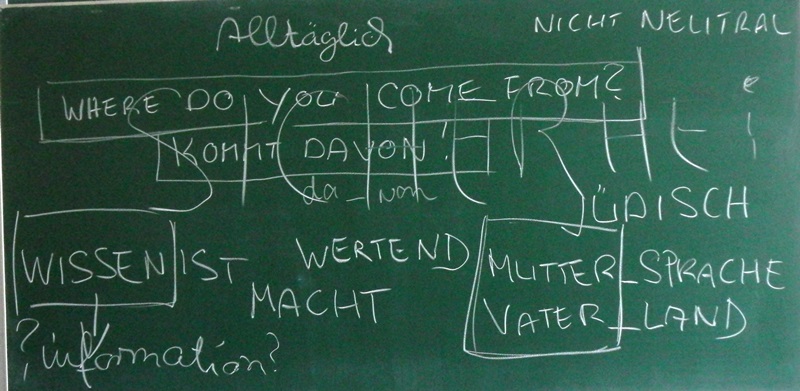 Alltäglich
NICHT NEUTRAL
WHERE DO YOU COME FROM?
KOMMT DAVON!
da-von
ÜDISCH
WISSEN IST WERTEND
MACHT
MUTTER-SPRACHE
VATER-LAND
?information?